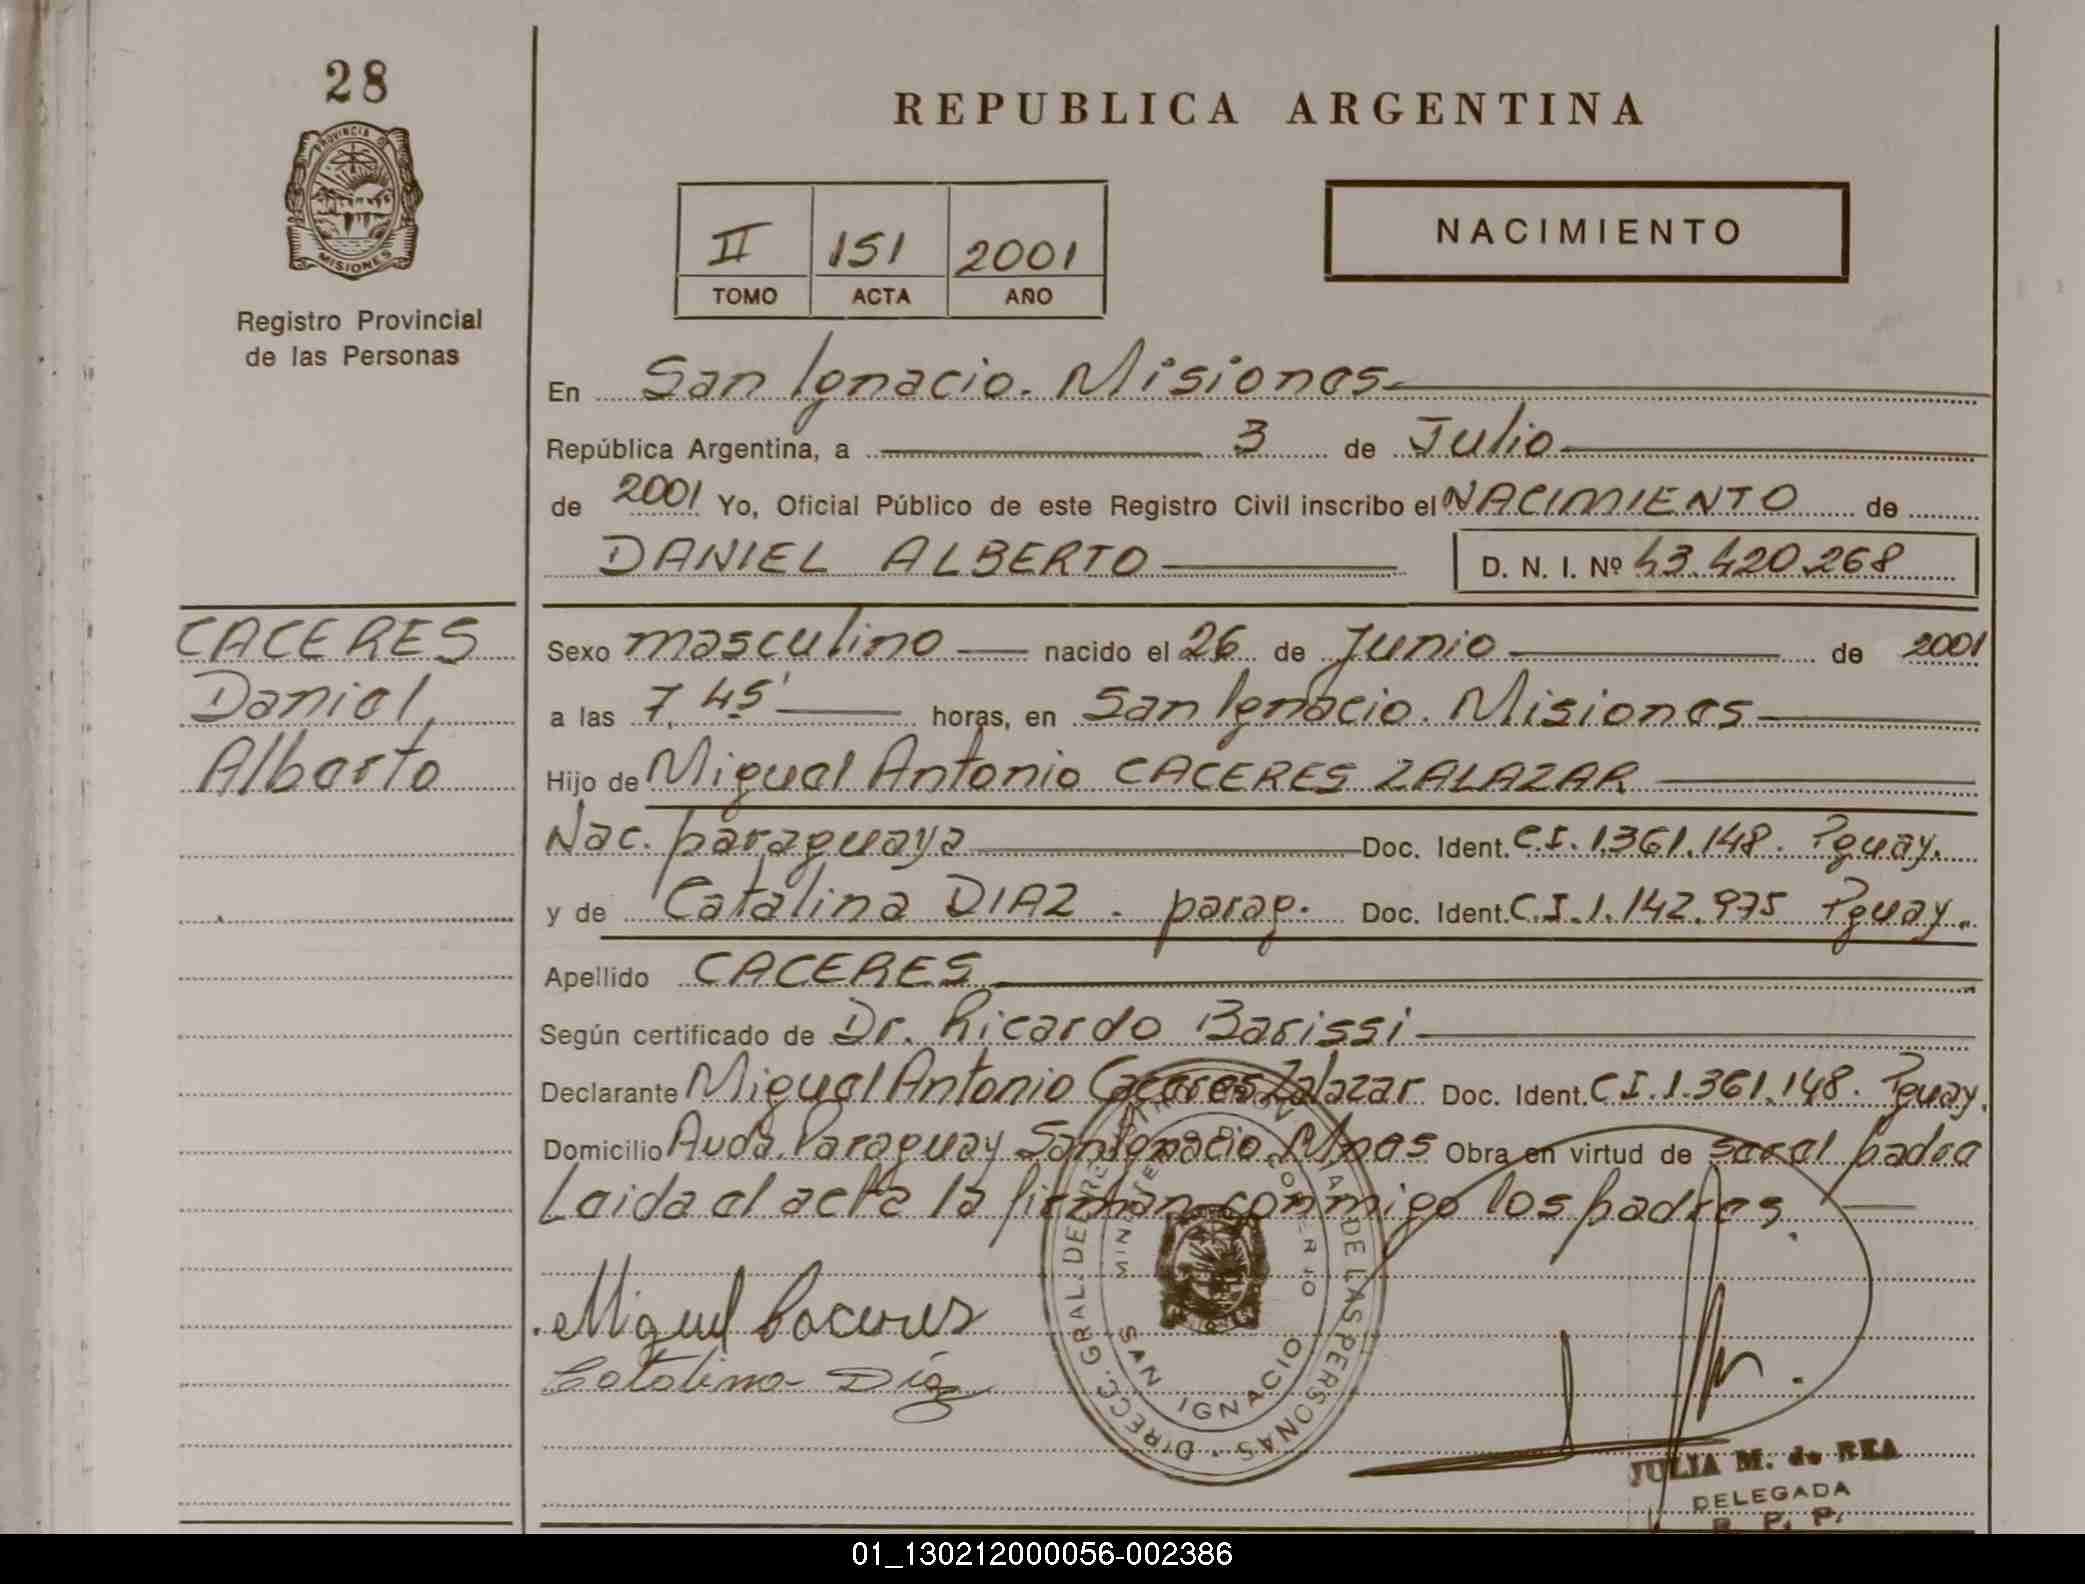 28
PROVINCIA DE
MISIONES
Registro Provincial
de las Personas
REPUBLICA ARGENTINA
II 151 2001
TOMO ACTA AÑO
NACIMIENTO
En San Ignacio. Misiones
República Argentina, a 3 de Julio
de 2001 Yo, Oficial Público de este Registro Civil inscribo el NACIMIENTO de
DANIEL ALBERTO D. N. I. Nº 43.420.268
CACERES
Daniel,
Alberto
Sexo masculino nacido el 26 de Junio de 2001
a las 7,45' horas, en San Ignacio. Misiones
Hijo de Miguel Antonio CACERES ZALAZAR
Nac. paraguaya Doc. Ident. C.I. 1.361.148. Pguay.
y de Catalina DIAZ. parag. Doc. Ident. C.I. 1.142.975 Pguay.
Apellido CACERES
Según certificado de Dr. Ricardo Barissi
Declarante Miguel Antonio Caceres Zalazar Doc. Ident. C I. 1.361.148. Pguay.
Domicilio Avda. Paraguay San Ignacio Mnes Obra en virtud de ser el padre
Leida el acta la firman conmigo los padres.
Miguel Caceres
Catalina Díaz
DIRECC. GRAL. DEL REGISTRO DE LAS PERSONAS
SAN IGNACIO
JULIA M. de REA
DELEGADA
R. P. P.
01_130212000056-002386